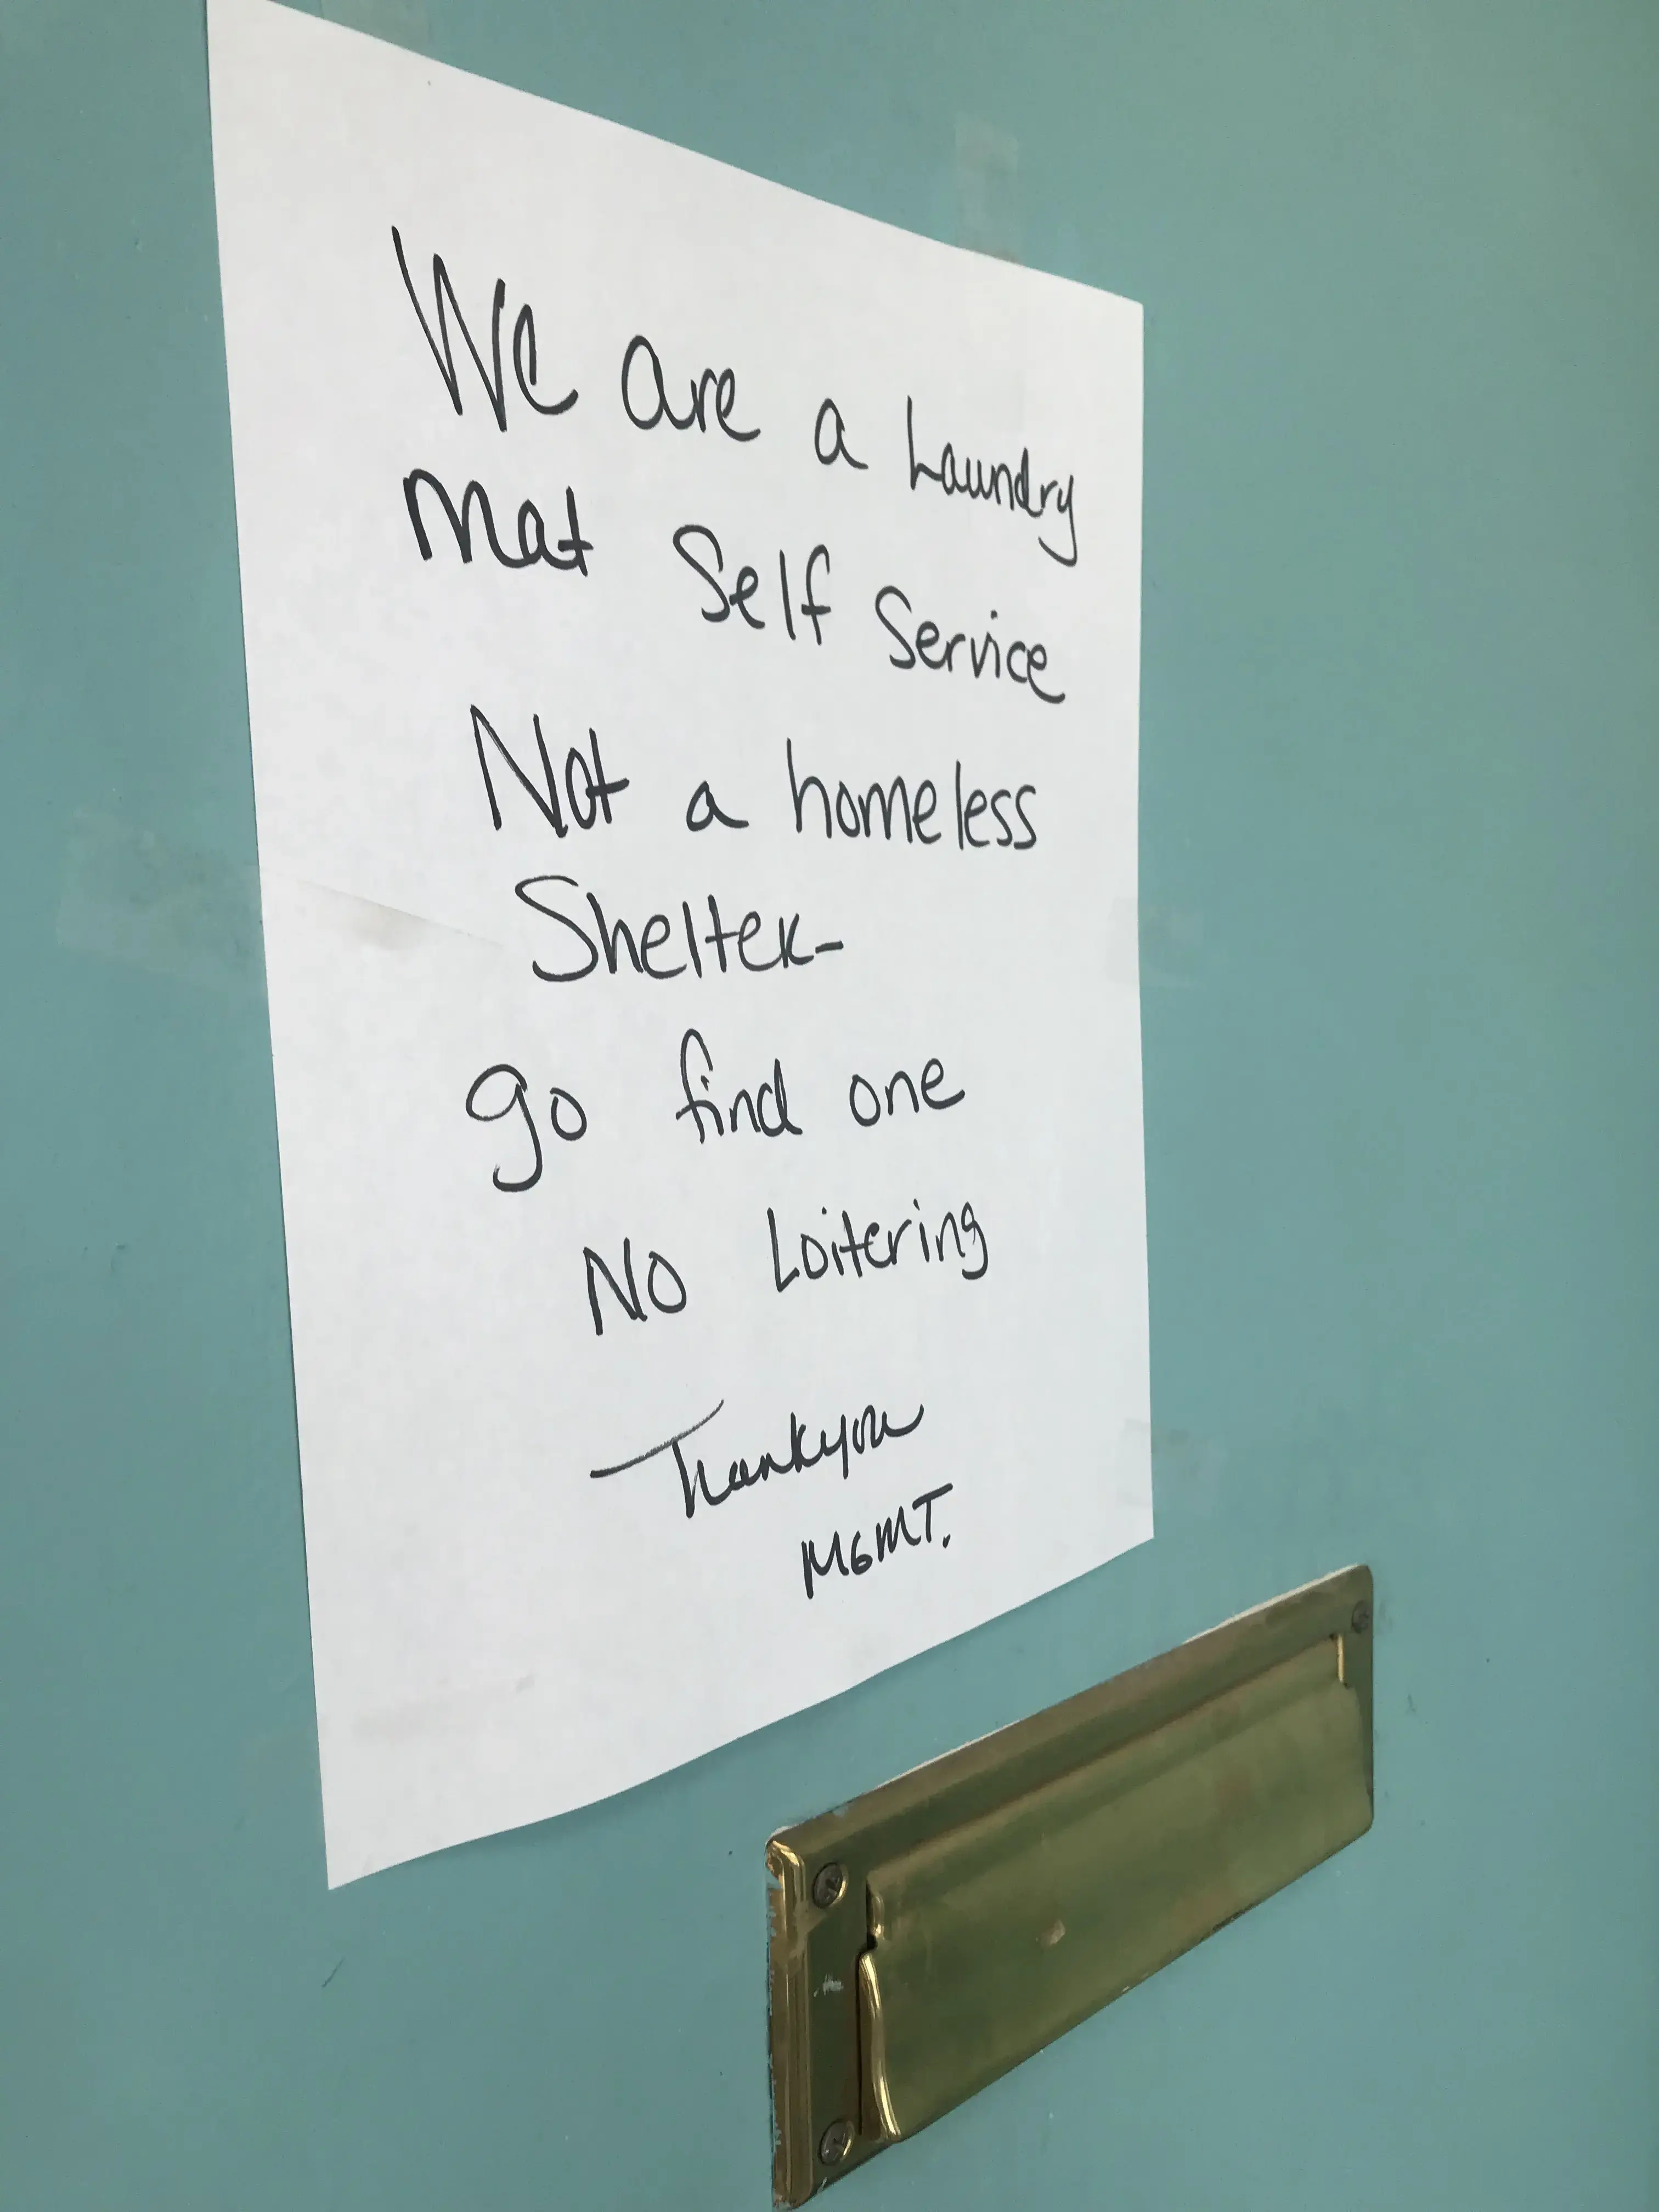 We are a Laundry
Mat Self Service
Not a homeless
Shelter-
go find one
No Loitering
Thankyou
MGMT.